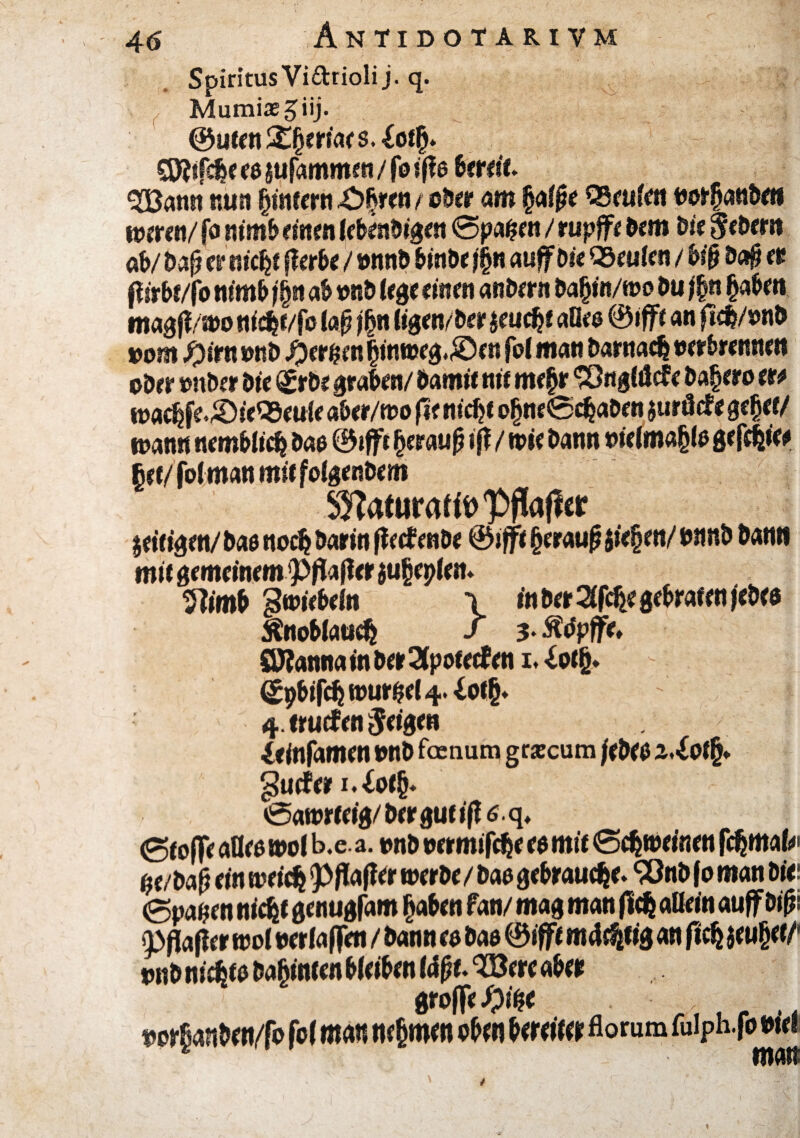 46 ANTIDOTARIVM
Spiritus Victrioli j. q.
Mumiæ ʒ iij.
Guten Theriacs. Loth.
Mische es zusammen / so ists bereit.
Wann nun hintern Ohren / oder am halße Beulen vorhanden
weren / so nimb einen lebendigen Spatzen / rupffe dem die Federn
ab / daß er nicht sterbe / vnnd binde jhn auff die Beulen / biß daß er
stirbt / so nimb jhn ab vnd lege einen andern dahin / wo du jhn haben
magst / wo nicht / so laß jhn ligen / der zeucht alles Gifft an sich / vnd
vom Hirn vnd Hertzen hinweg. Den sol man darnach verbrennen
oder vnder die Erde graben / damit nit mehr Vnglücke dahero er⸗
wachse. Die Beule aber / wo sie nicht ohne Schaden zurücke gehet /
wann nemblich das Gifft herauß ist / wie dann vielmahls geschie⸗
het / sol man mit folgendem
Maturativ Pflaster
zeitigen / das noch darin steckende Gifft herauß ziehen / vnnd dann
mit gemeinem Pflaster zuheylen.
Nimb Zwiebeln } in der Asche gebraten jedes
Knoblauch } 3. Köpffe.
Manna in der Apotecken 1. Loth.
Eybisch wurtzel 4. Loth.
4. trucken Feigen
Leinsamen vnd fœnum græcum jedes 2. Loth.
Zucker 1. Loth.
Sawrteig / der gut ist 6. q.
Stosse alles wol b. e. a. vnd vermische es mit Schweinen schmal⸗
tze / daß ein weich Pflaster werde / das gebrauche. Vnd so man die
Spatzen nicht genugsam haben kan / mag man sich allein auff diß
Pflaster wol verlassen / dann es das Gifft mächtig an sich zeuhet /
vnd nichts dahinten bleiben läßt. Were aber
grosse Hitze
vorhanden / so sol man nehmen oben bereiter florum sulph. so viel
man